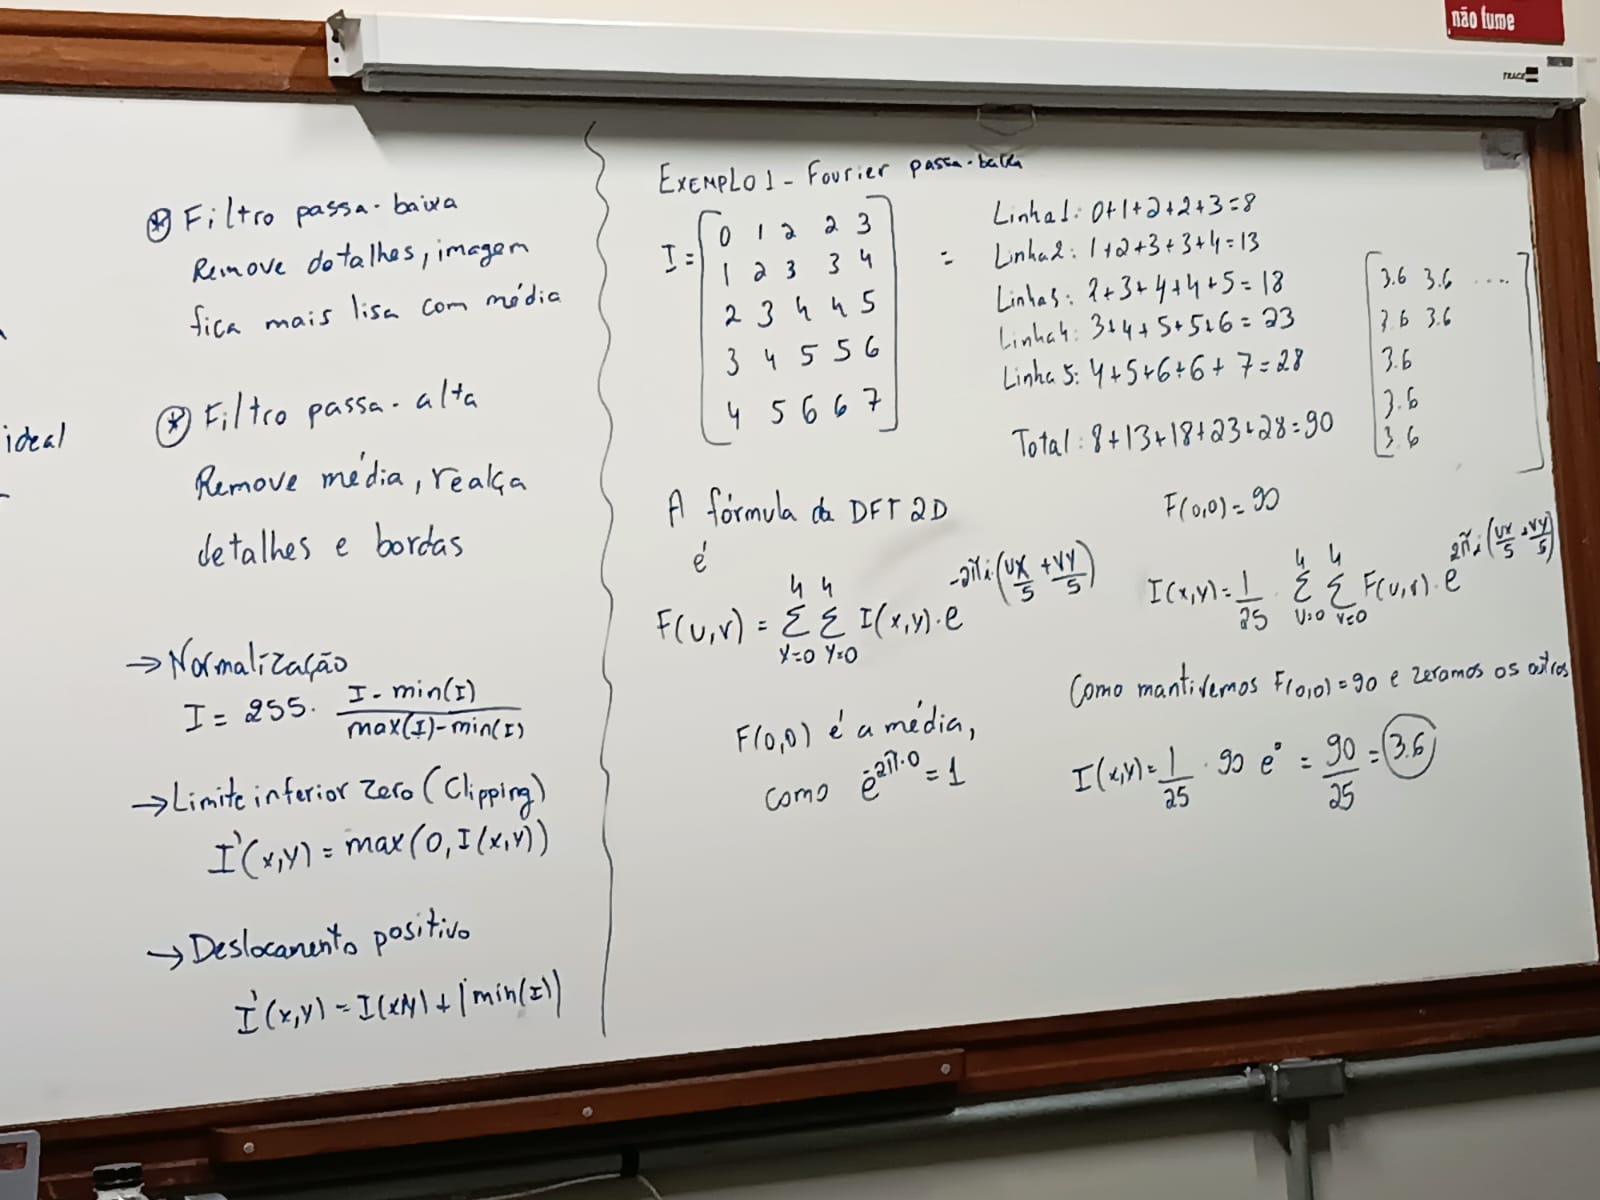 não fume
TRACE
ideal
* Filtro passa-baixa
Remove detalhes, imagem
fica mais lisa com média
* Filtro passa-alta
Remove média, realça
detalhes e bordas
→ Normalização
I = 255 · (I - min(I)) / (max(I) - min(I))
→ Limite inferior zero (Clipping)
I'(x,y) = max(0, I(x,y))
→ Deslocamento positivo
I'(x,y) = I(x,y) + |min(I)|
EXEMPLO 1 - Fourier passa-baixa
I = [0 1 2 2 3
1 2 3 3 4
2 3 4 4 5
3 4 5 5 6
4 5 6 6 7]
=
Linha 1: 0+1+2+2+3=8
Linha 2: 1+2+3+3+4=13
Linha 3: 2+3+4+4+5=18
Linha 4: 3+4+5+5+6=23
Linha 5: 4+5+6+6+7=28
Total: 8+13+18+23+28=90
[3.6 3.6 ....
3.6 3.6
3.6
3.6
3.6]
A fórmula da DFT 2D
é
F(u,v) = Σ_{x=0}^{4} Σ_{y=0}^{4} I(x,y) · e^{-2πi(ux/5 + vy/5)}
F(0,0) é a média,
como e^{-2π·0} = 1
F(0,0) = 90
I(x,y) = 1/25 · Σ_{u=0}^{4} Σ_{v=0}^{4} F(u,v) · e^{2πi(ux/5 + vy/5)}
Como mantivemos F(0,0) = 90 e zeramos os outros
I(x,y) = 1/25 · 90 e⁰ = 90/25 = 3.6